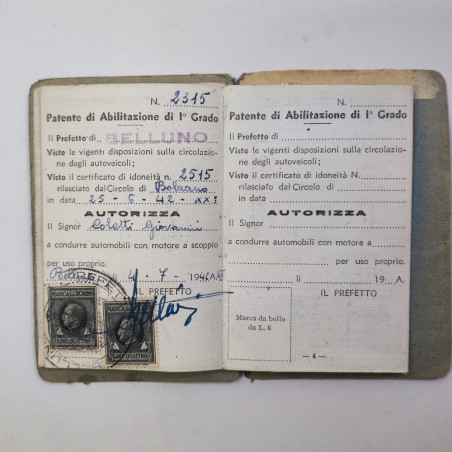 N. 2315
Patente di Abilitazione di Iº Grado
Il Prefetto di BELLUNO
Viste le vigenti disposizioni sulla circolazione
degli autoveicoli;
Visto il certificato di idoneità n. 2515
rilasciato dal Circolo di Bolzano
in data 25-6-42-XXº
AUTORIZZA
Il Signor Colotti Giovanni
a condurre automobili con motore a scoppio
per uso proprio.
li 4-7-194
IL PREFETTO
PREFE
LIRE QUATTRO
N.
Patente di Abilitazione di Iº Grado
Il Prefetto di
Viste le vigenti disposizioni sulla circolazione
degli autoveicoli;
Visto il certificato di idoneità N.
rilasciato dal Circolo di
in data
AUTORIZZA
Il Signor
a condurre automobili con motore a
per uso proprio.
li 19 A.
IL PREFETTO
Marca da bollo
da L. 6
— 4 —